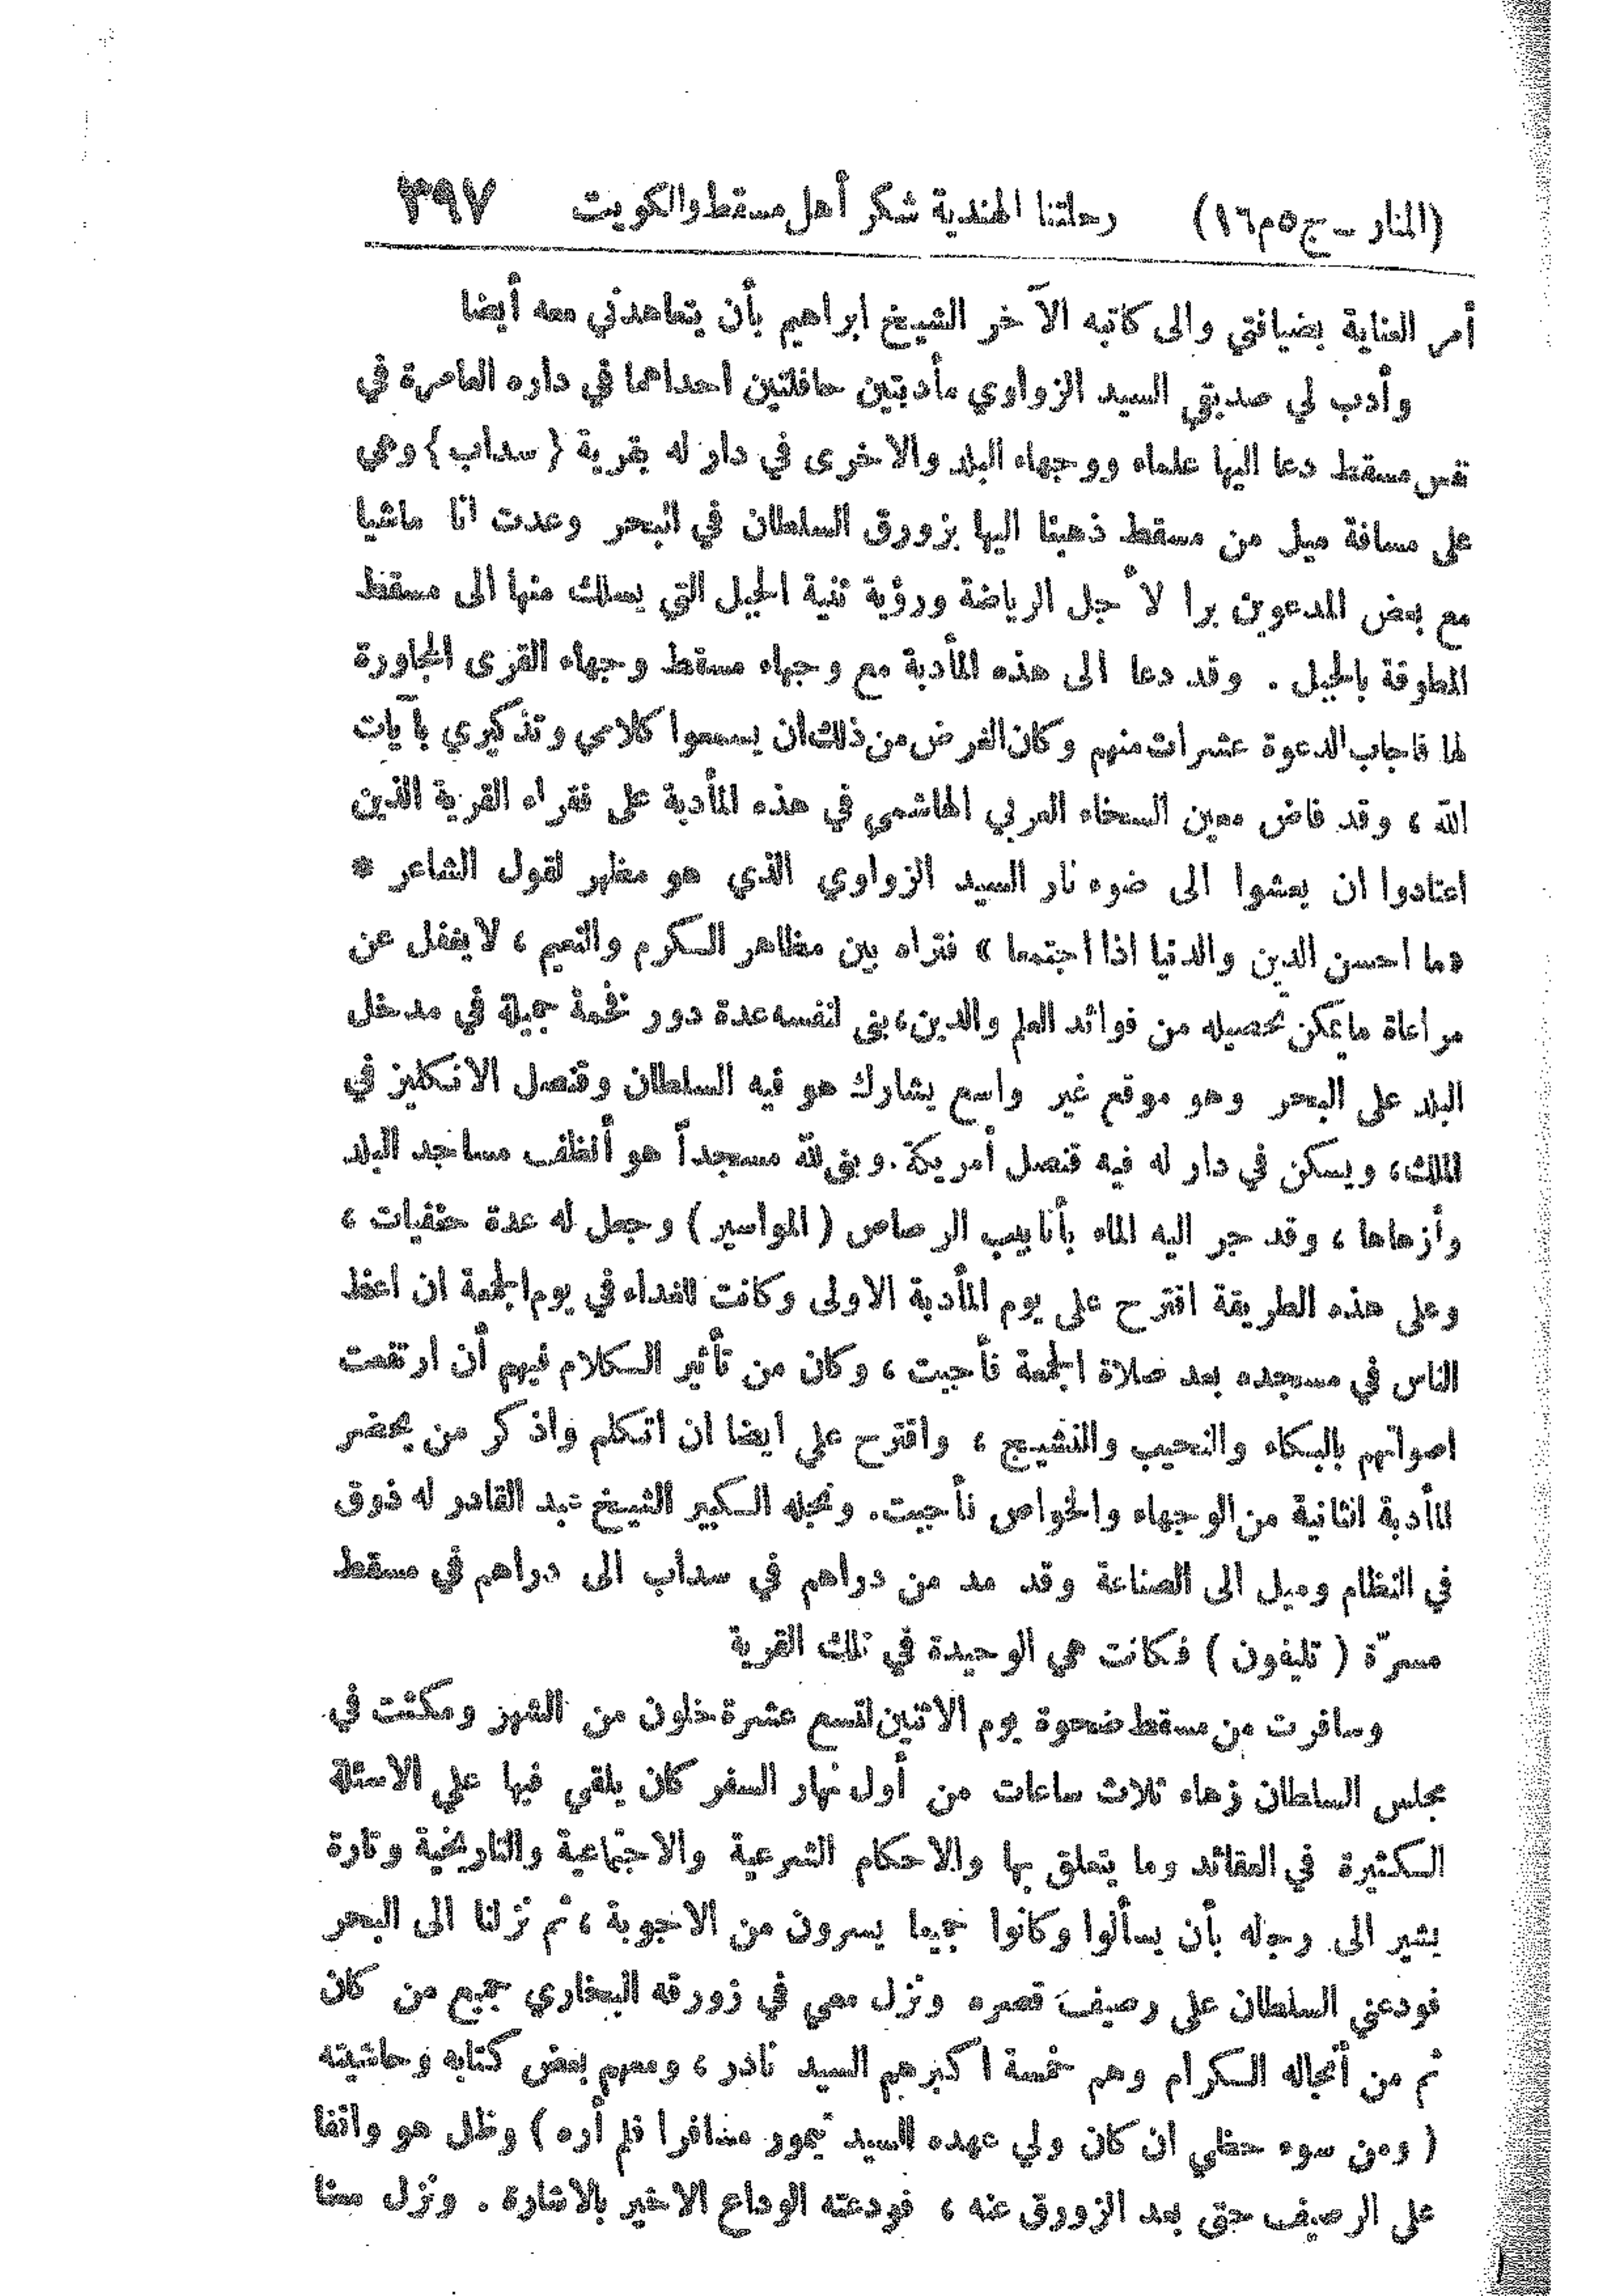 (المنار ـ ج٥م١٦) رحلتنا الهندية شكر أهل مسقط والكويت ٣٩٧
أمر العناية بضيافتي والى كاتبه الآخر الشيخ ابراهيم بأن يتعاهدني معه أيضا
وأدب لي صديقي السيد الزواوي مأدبتين حافلتين احداهما في داره العامرة في
نفس مسقط دعا اليها علماء ووجهاء البلد والاخرى في دار له بقرية (سداب) وهي
على مسافة ميل من مسقط ذهبنا اليها بزورق السلطان في البحر وعدت انا ماشيا
مع بعض المدعوين برا لأجل الرياضة ورؤية ثنية الجبل التي يسلك منها الى مسقط
المطوقة بالجبل . وقد دعا الى هذه المأدبة مع وجهاء مسقط وجهاء القرى المجاورة
لها فاجاب الدعوة عشرات منهم وكان الغرض من ذلك ان يسمعوا كلامي وتذكيري بآيات
الله ، وقد فاض معين السخاء العربي الهاشمي في هذه المأدبة على فقراء القرية الذين
اعتادوا ان يعشوا الى ضوء نار السيد الزواوي الذي هو مظهر لقول الشاعر *
«ما احسن الدين والدنيا اذا اجتمعا » فتراه بين مظاهر الكرم والنعيم ، لا يغفل عن
مراعاة ما يمكن تحصيله من فوائد العلم والدين، بنى لنفسه عدة دور فخمة جميلة في مدخل
البلد على البحر وهو موقع غير واسع يشارك هو فيه السلطان وقنصل الانكليز في
الملك، ويسكن في دار له فيه قنصل أمريكة . وبنى لله مسجداً هو أنظف مساجد البلد
وأزهاها ، وقد جر اليه الماء بأنابيب الرصاص ( المواسير ) وجعل له عدة حنفيات ،
وعلى هذه الطريقة اقترح علي يوم المأدبة الاولى وكانت للغداء في يوم الجمعة ان اعظ
الناس في مسجده بعد صلاة الجمعة فأجبت ، وكان من تأثير الكلام فيهم أن ارتفعت
اصواتهم بالبكاء والنحيب والنشيج ، واقترح علي ايضا ان اتكلم واذكر من يحضر
المأدبة الثانية من الوجهاء والخواص فأجبت. ونجله الكبير الشيخ عبد القادر له ذوق
في النظام وميل الى الصناعة وقد مد من دراهم في سداب الى دراهم في مسقط
مسرّة ( تليفون ) فكانت هي الوحيدة في تلك القرية
وسافرت من مسقط ضحوة يوم الاثنين لتسع عشرة خلون من الشهر ومكثت في
مجلس السلطان زهاء ثلاث ساعات من أول نهار السفر كان يلقي فيها علي الاسئلة
الكثيرة في العقائد وما يتعلق بها والاحكام الشرعية والاجتماعية والتاريخية وتارة
يشير الى رجله بأن يسألوا وكانوا جميعا يسرون من الاجوبة ، ثم نزلنا الى البحر
فودعني السلطان على رصيف قصره ونزل معي في زورقه البخاري جميع من كان
ثم من أنجاله الكرام وهم خمسة اكبرهم السيد نادر ، ومعهم بعض كتابه وحاشيته
( ومن سوء حظي ان كان ولي عهده السيد تيمور مسافرا فلم أره ) وظل هو واقفا
على الرصيف حتى بعد الزورق عنه ، فودعته الوداع الاخير بالاشارة . ونزل معنا